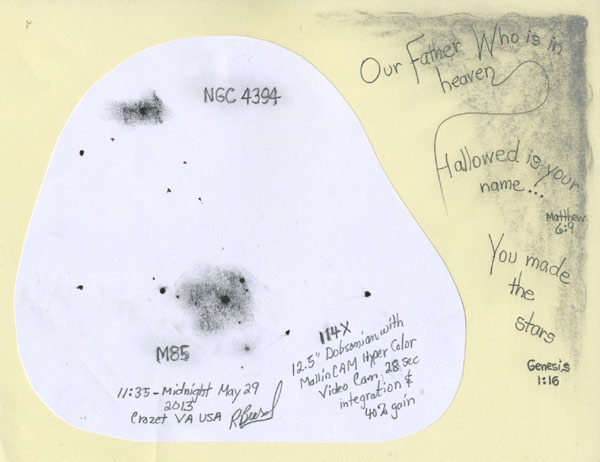 NGC 4394
Our Father Who is in
heaven
Hallowed is your
name...
Matthew
6:9
You made
the
stars
Genesis
1:16
M85
11:35 - Midnight May 29
2013
Crozet VA USA
114X
12.5" Dobsonian with
MallinCAM Hyper Color
Video Cam, 28 sec
integration &
40% gain